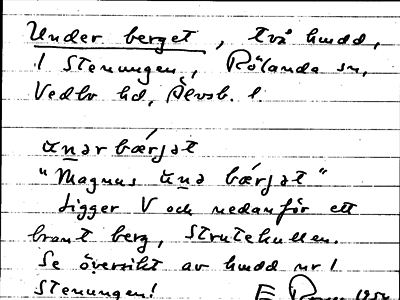 Under berget, två hmdd,
i Stenungen, Rölanda sn,
Vedbo hd, Älvsb. l.
ɯnər bærjət
"Magnus ɯnə bærjət"
Ligger V och nedanför ett
brant berg, Strutehullen.
Se översikt av hmdd nr 1
Stenungen!